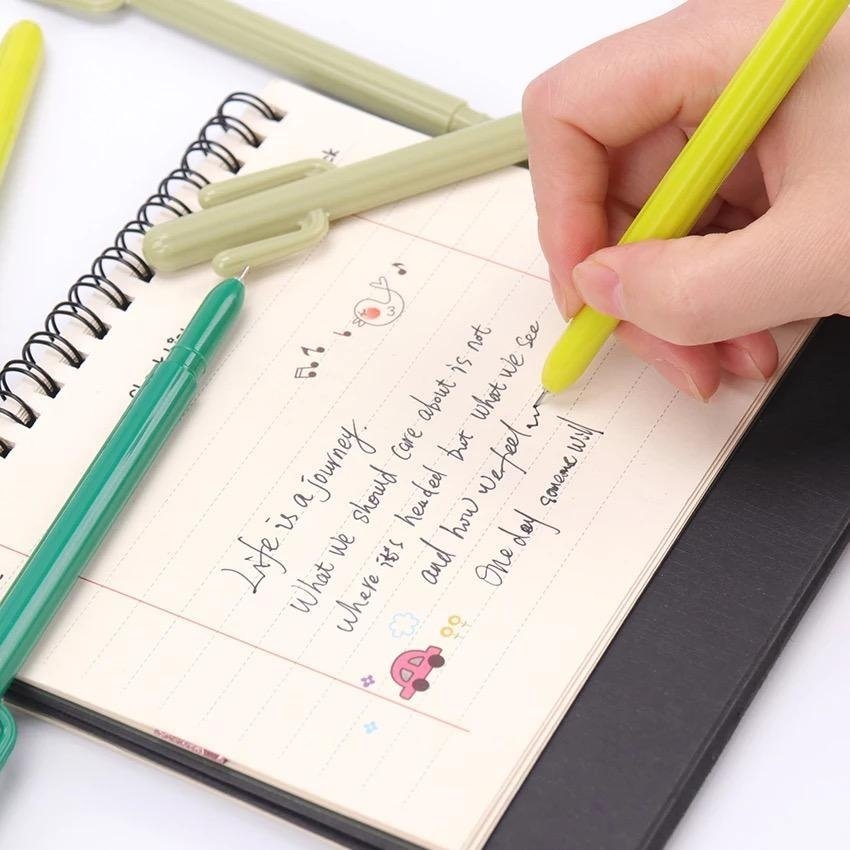 Life is a journey.
What we should care about is not
where it's headed but what we see
and how we feel
One day someone will